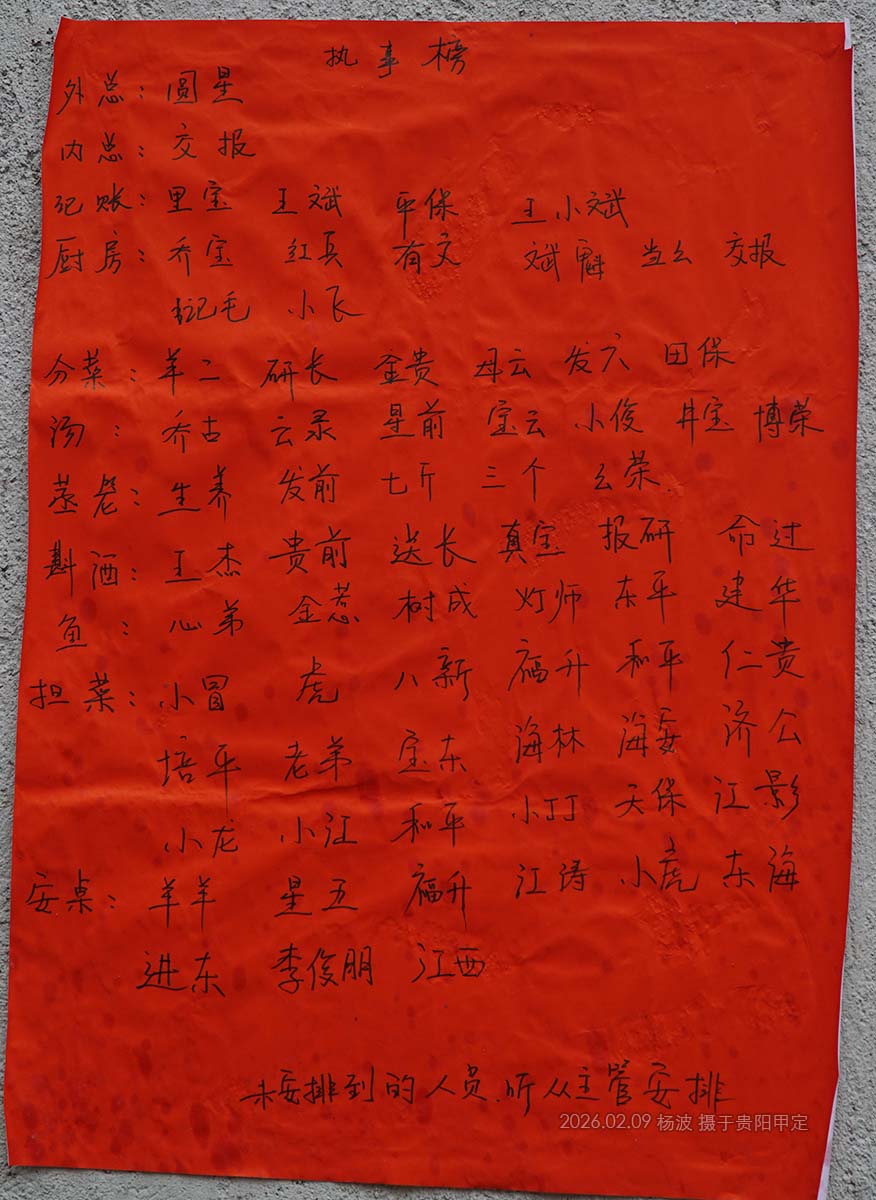 执事榜
外总：圆星
内总：交报
记账：里宝 王斌 平保 王小斌
厨房：乔宝 红真 有文 斌 当么 交报
毛 小飞
分菜：羊二 研长 金贵 母云 发六 田保
汤：乔古 云录 星前 宝云 小俊 井宝 博荣
蒸：生养 发前 七斤 三个 么荣.
斟酒：王杰 贵前 送长 真宝 报研 命过
鱼：心弟 金惹 树成 灯师 东平 建华
担菜：小冒 虎 八新 福升 和平 仁贵
培平 老弟 宝东 海林 海安 济公
小龙 小江 和平 小丁丁 天保 江影
安桌：羊羊 星五 福升 江涛 小虎 东海
进东 李俊朋 江西
未安排到的人员.听从主管安排
2026.02.09 杨波 摄于贵阳甲定